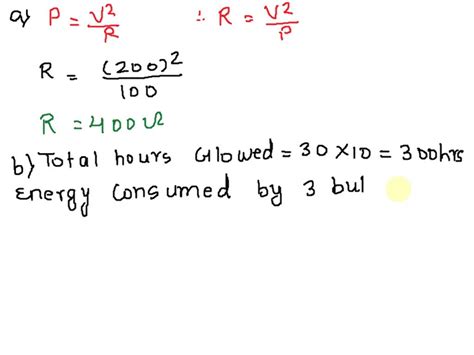 a) P = V²/R ∴ R = V²/P
R = (200)²/100
R = 400Ω
b) Total hours Glowed = 30 × 10 = 300hrs
Energy consumed by 3 bul